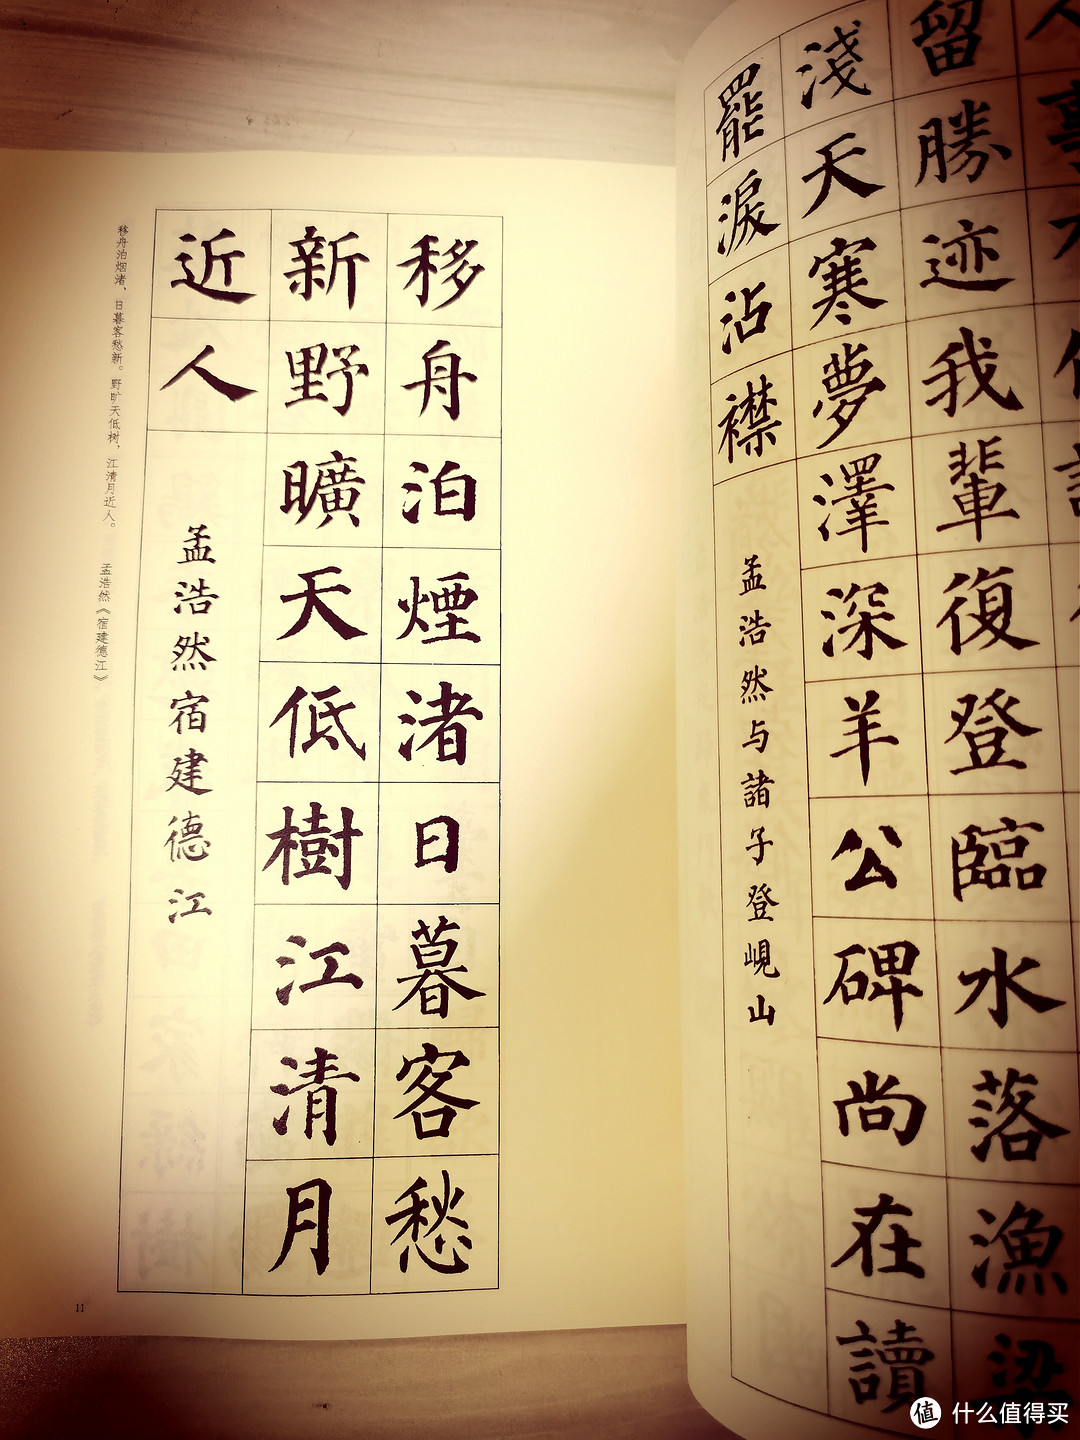 移舟泊煙渚日暮客愁
新野曠天低樹江清月
近人
孟浩然宿建德江
移舟泊烟渚，日暮客愁新。野旷天低树，江清月近人。
孟浩然《宿建德江》
11
留勝迹我輩復登臨水落漁梁
淺天寒夢澤深羊公碑尚在讀
罷淚沾襟
孟浩然与諸子登峴山
值 什么值得买